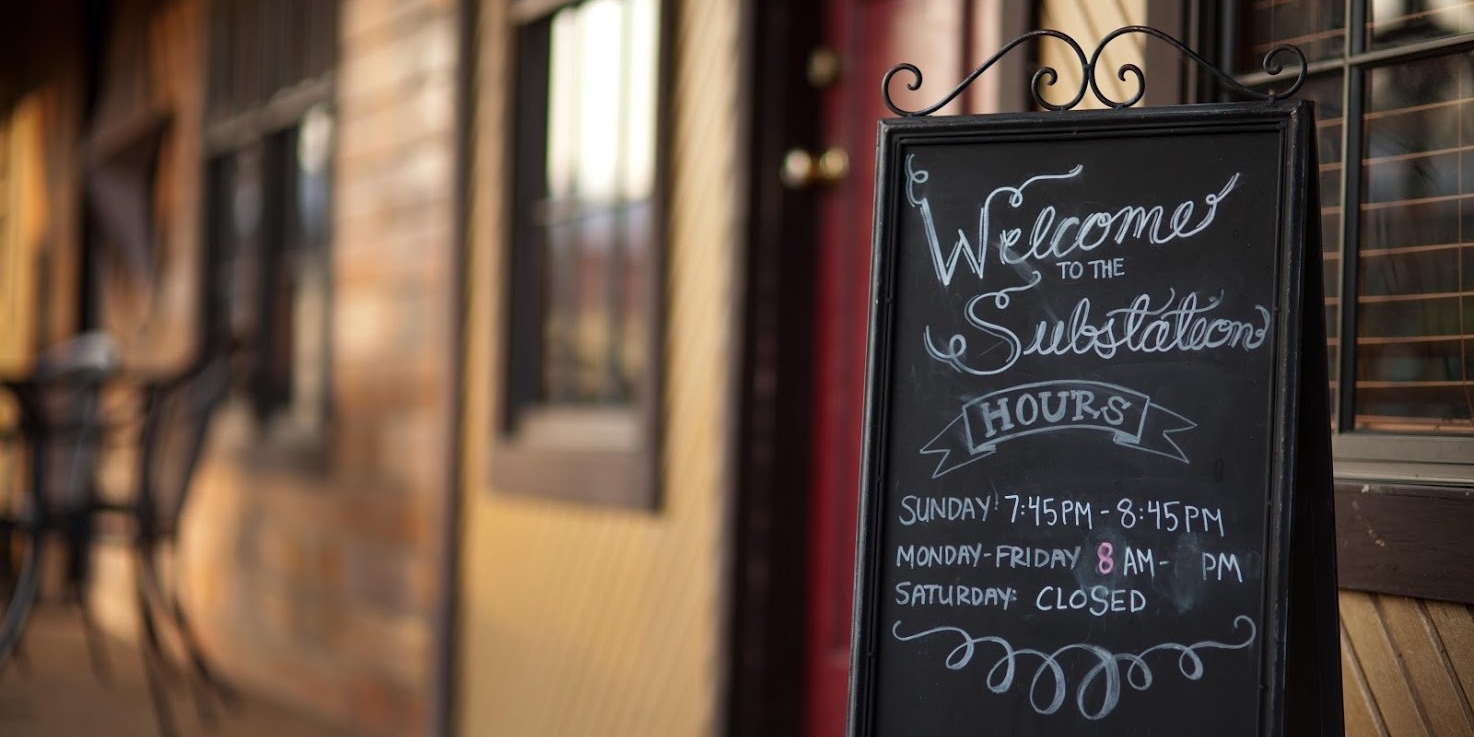 Welcome
TO THE
Substation
HOURS
SUNDAY: 7:45PM - 8:45PM
MONDAY-FRIDAY 8 AM- PM
SATURDAY: CLOSED